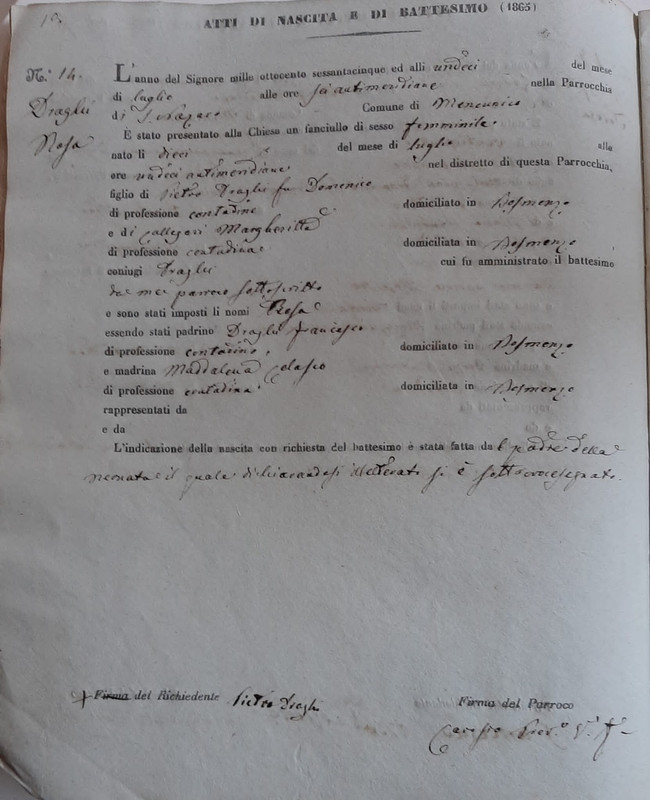 ATTI DI NASCITA E DI BATTESIMO (1865)
N.° 14.
Draghi
Rosa
L'anno del Signore mille ottocento sessantacinque ed alli undeci del mese
di luglio alle ore sei antimeridiane nella Parrocchia
di S. Nazaro Comune di Menconico
È stato presentato alla Chiesa un fanciullo di sesso femminile
nato li dieci del mese di luglio alle
ore undeci antimeridiane nel distretto di questa Parrocchia,
figlio di Pietro Draghi fu Domenico
di professione contadino domiciliato in
e di Callegari Margheritta
di professione contadina domiciliata in
coniugi Draghi cui fu amministrato il battesimo
da me parroco sottoscritto
e sono stati imposti li nomi Rosa
essendo stati padrino Draghi Francesco
di professione contadino, domiciliato in
e madrina Maddalena
di professione contadina domiciliata in
rappresentati da
e da
L'indicazione della nascita con richiesta del battesimo è stata fatta dal padre della
neonata il quale dichiarandosi illetterato si è sottocrocesegnato.
+ Firma del Richiedente Pietro Draghi
Firma del Parroco